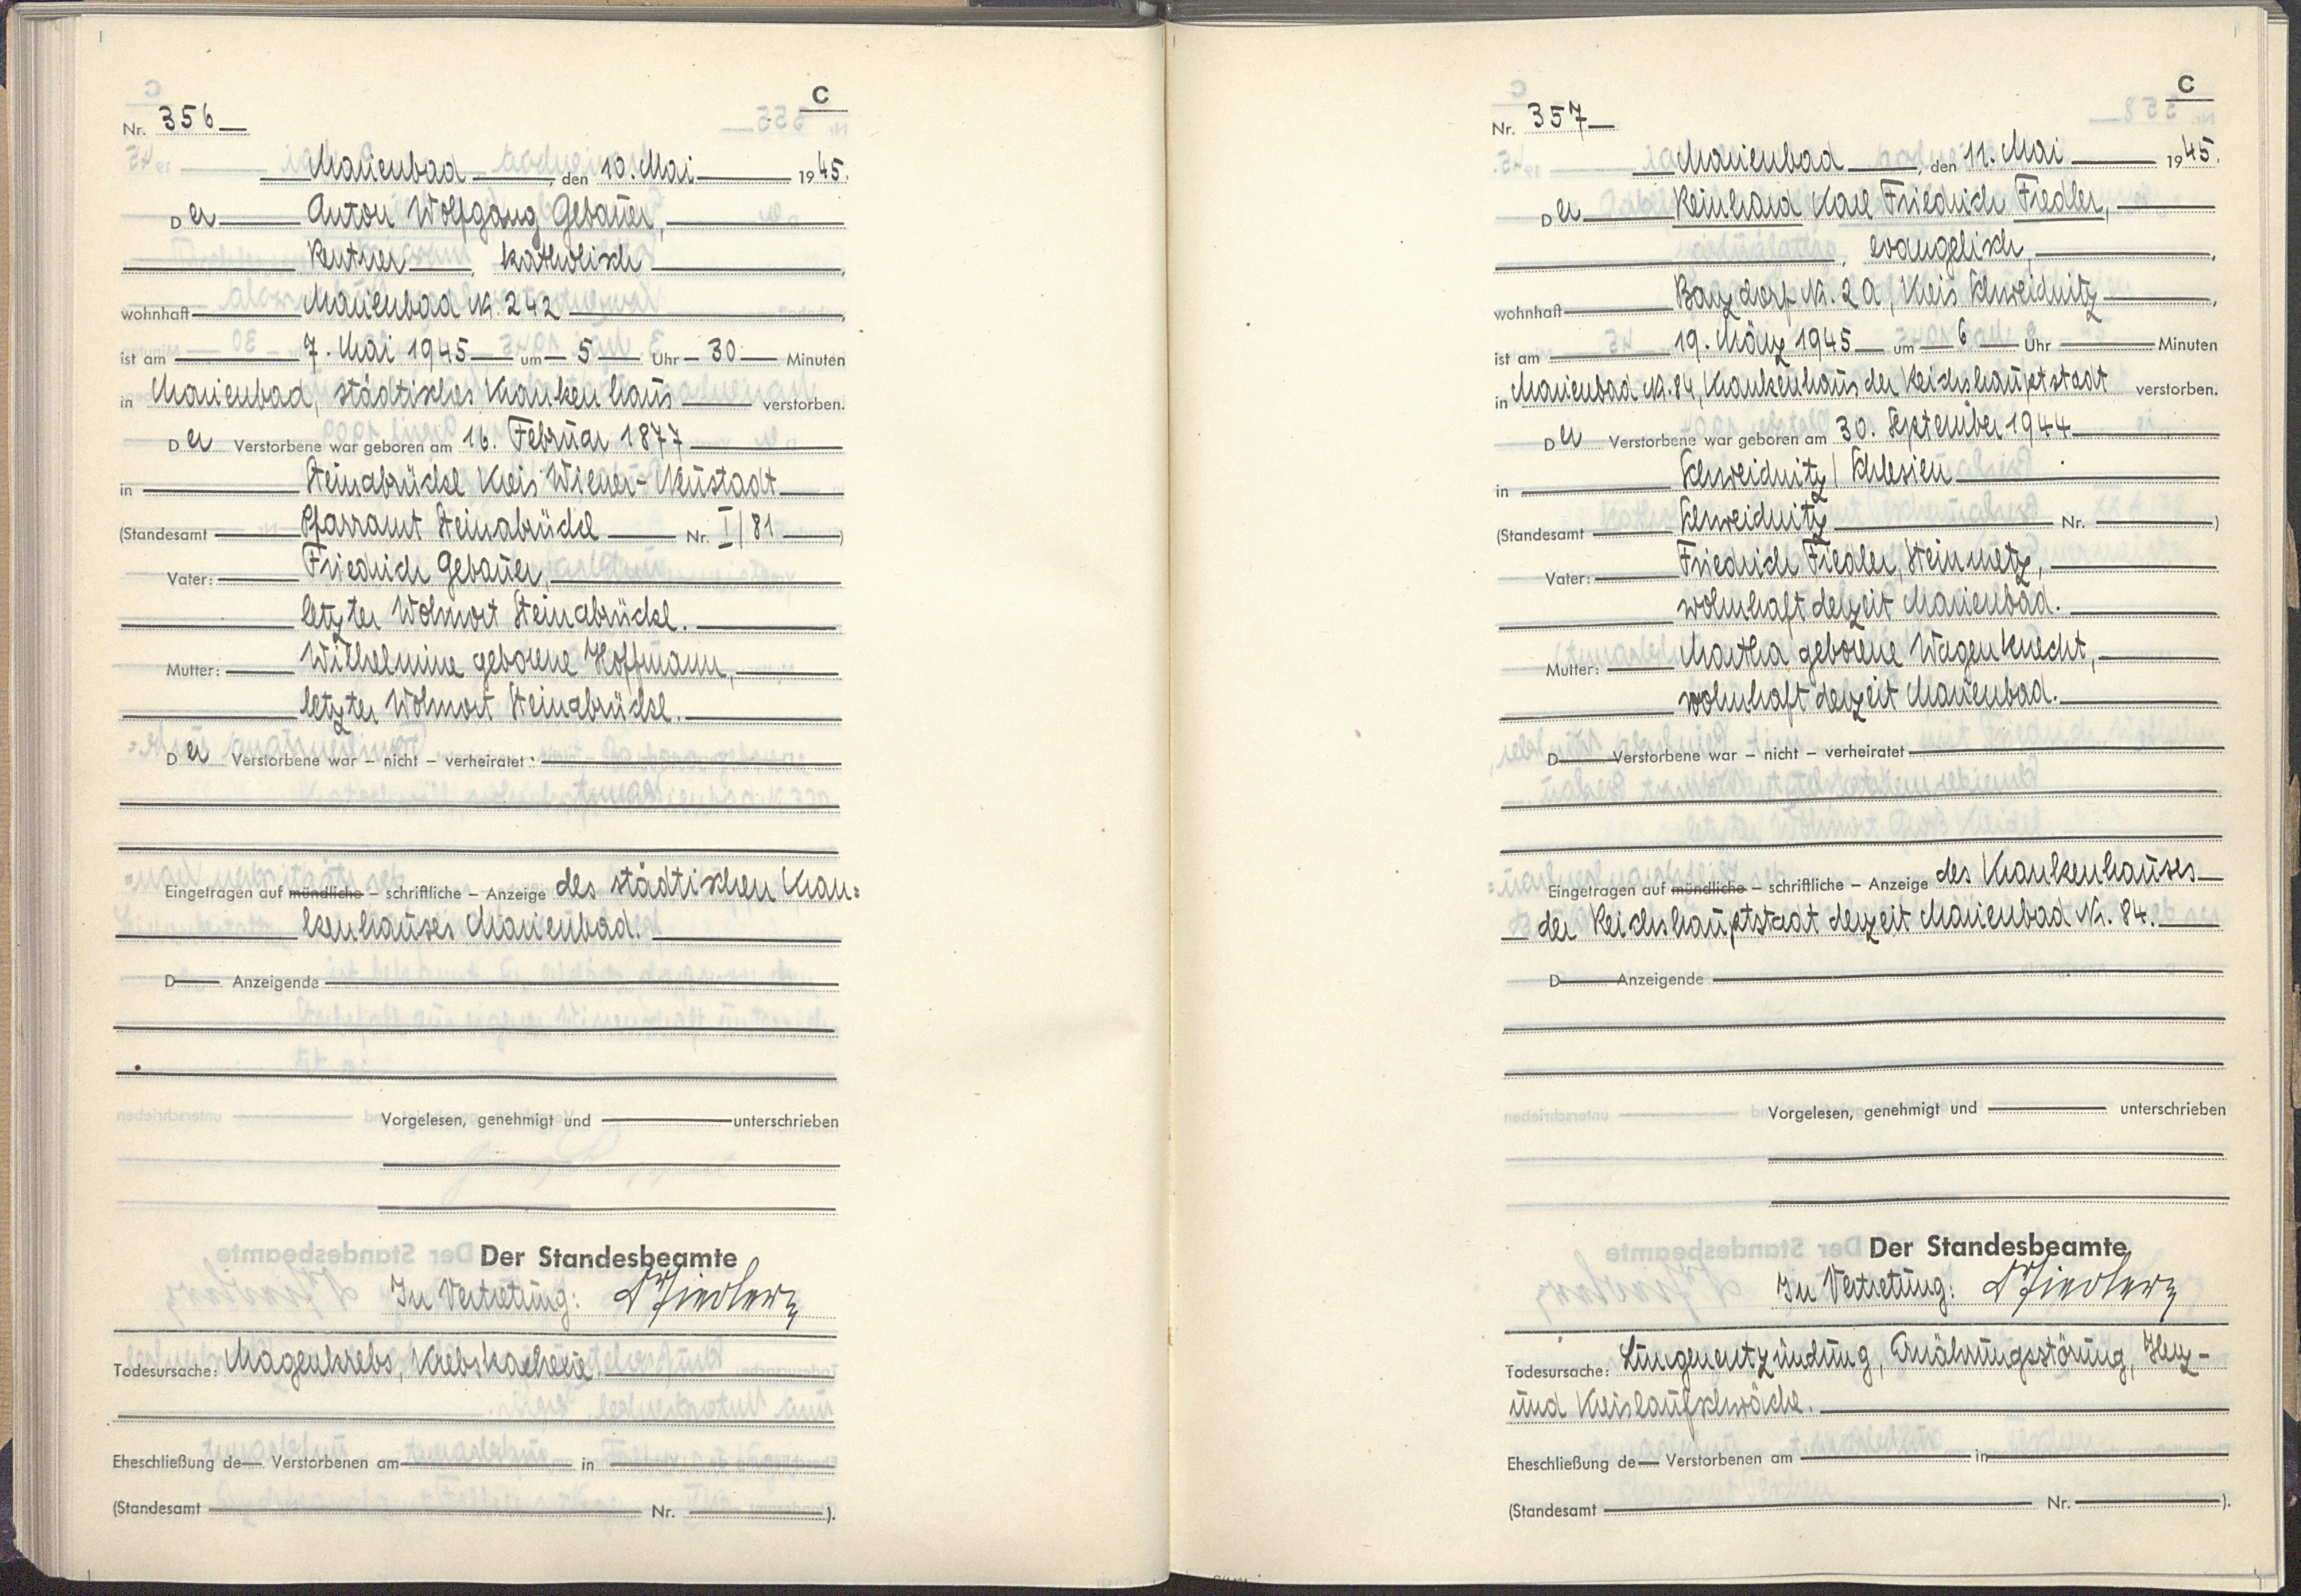 C
Nr. 356
Marienbad, den 10. Mai 1945.
Der Anton Wolfgang Gebauer,
Rentner, katholisch,
wohnhaft Marienbad Nr. 242,
ist am 7. Mai 1945 um 5 Uhr 30 Minuten
in Marienbad, städtisches Krankenhaus verstorben.
Der Verstorbene war geboren am 16. Februar 1877
in Steinabrückl Kreis Wiener-Neustadt
(Standesamt Pfarramt Steinabrückl Nr. I/81)
Vater: Friedrich Gebauer,
letzter Wohnort Steinabrückl.
Mutter: Wilhelmine geborene Hoffmann,
letzter Wohnort Steinabrückl.
Der Verstorbene war – nicht – verheiratet.
Eingetragen auf mündliche – schriftliche – Anzeige des städtischen Kran=
kenhauses Marienbad.
D Anzeigende
Vorgelesen, genehmigt und unterschrieben
Der Standesbeamte
In Vertretung:
Todesursache: Magenkrebs, Krebskachexie.
Eheschließung de Verstorbenen am in
(Standesamt Nr. ).
C
Nr. 357
Marienbad, den 11. Mai 1945.
Der Reinhard Karl Friedrich Fiedler,
, evangelisch,
wohnhaft Banzdorf Nr. 2a, Kreis Schweidnitz,
ist am 19. März 1945 um 6 Uhr Minuten
in Marienbad Nr. 84, Krankenhaus der Reichshauptstadt verstorben.
Der Verstorbene war geboren am 30. September 1944
in Schweidnitz/Schlesien
(Standesamt Schweidnitz Nr. )
Vater: Friedrich Fiedler, Steinmetz,
wohnhaft derzeit Marienbad.
Mutter: Martha geborene Wagenknecht,
wohnhaft derzeit Marienbad.
D Verstorbene war – nicht – verheiratet
Eingetragen auf mündliche – schriftliche – Anzeige des Krankenhauses
der Reichshauptstadt derzeit Marienbad Nr. 84.
D Anzeigende
Vorgelesen, genehmigt und unterschrieben
Der Standesbeamte
In Vertretung:
Todesursache: Lungenentzündung, Ernährungsstörung, Herz-
und Kreislaufschwäche.
Eheschließung de Verstorbenen am in
(Standesamt Nr. ).